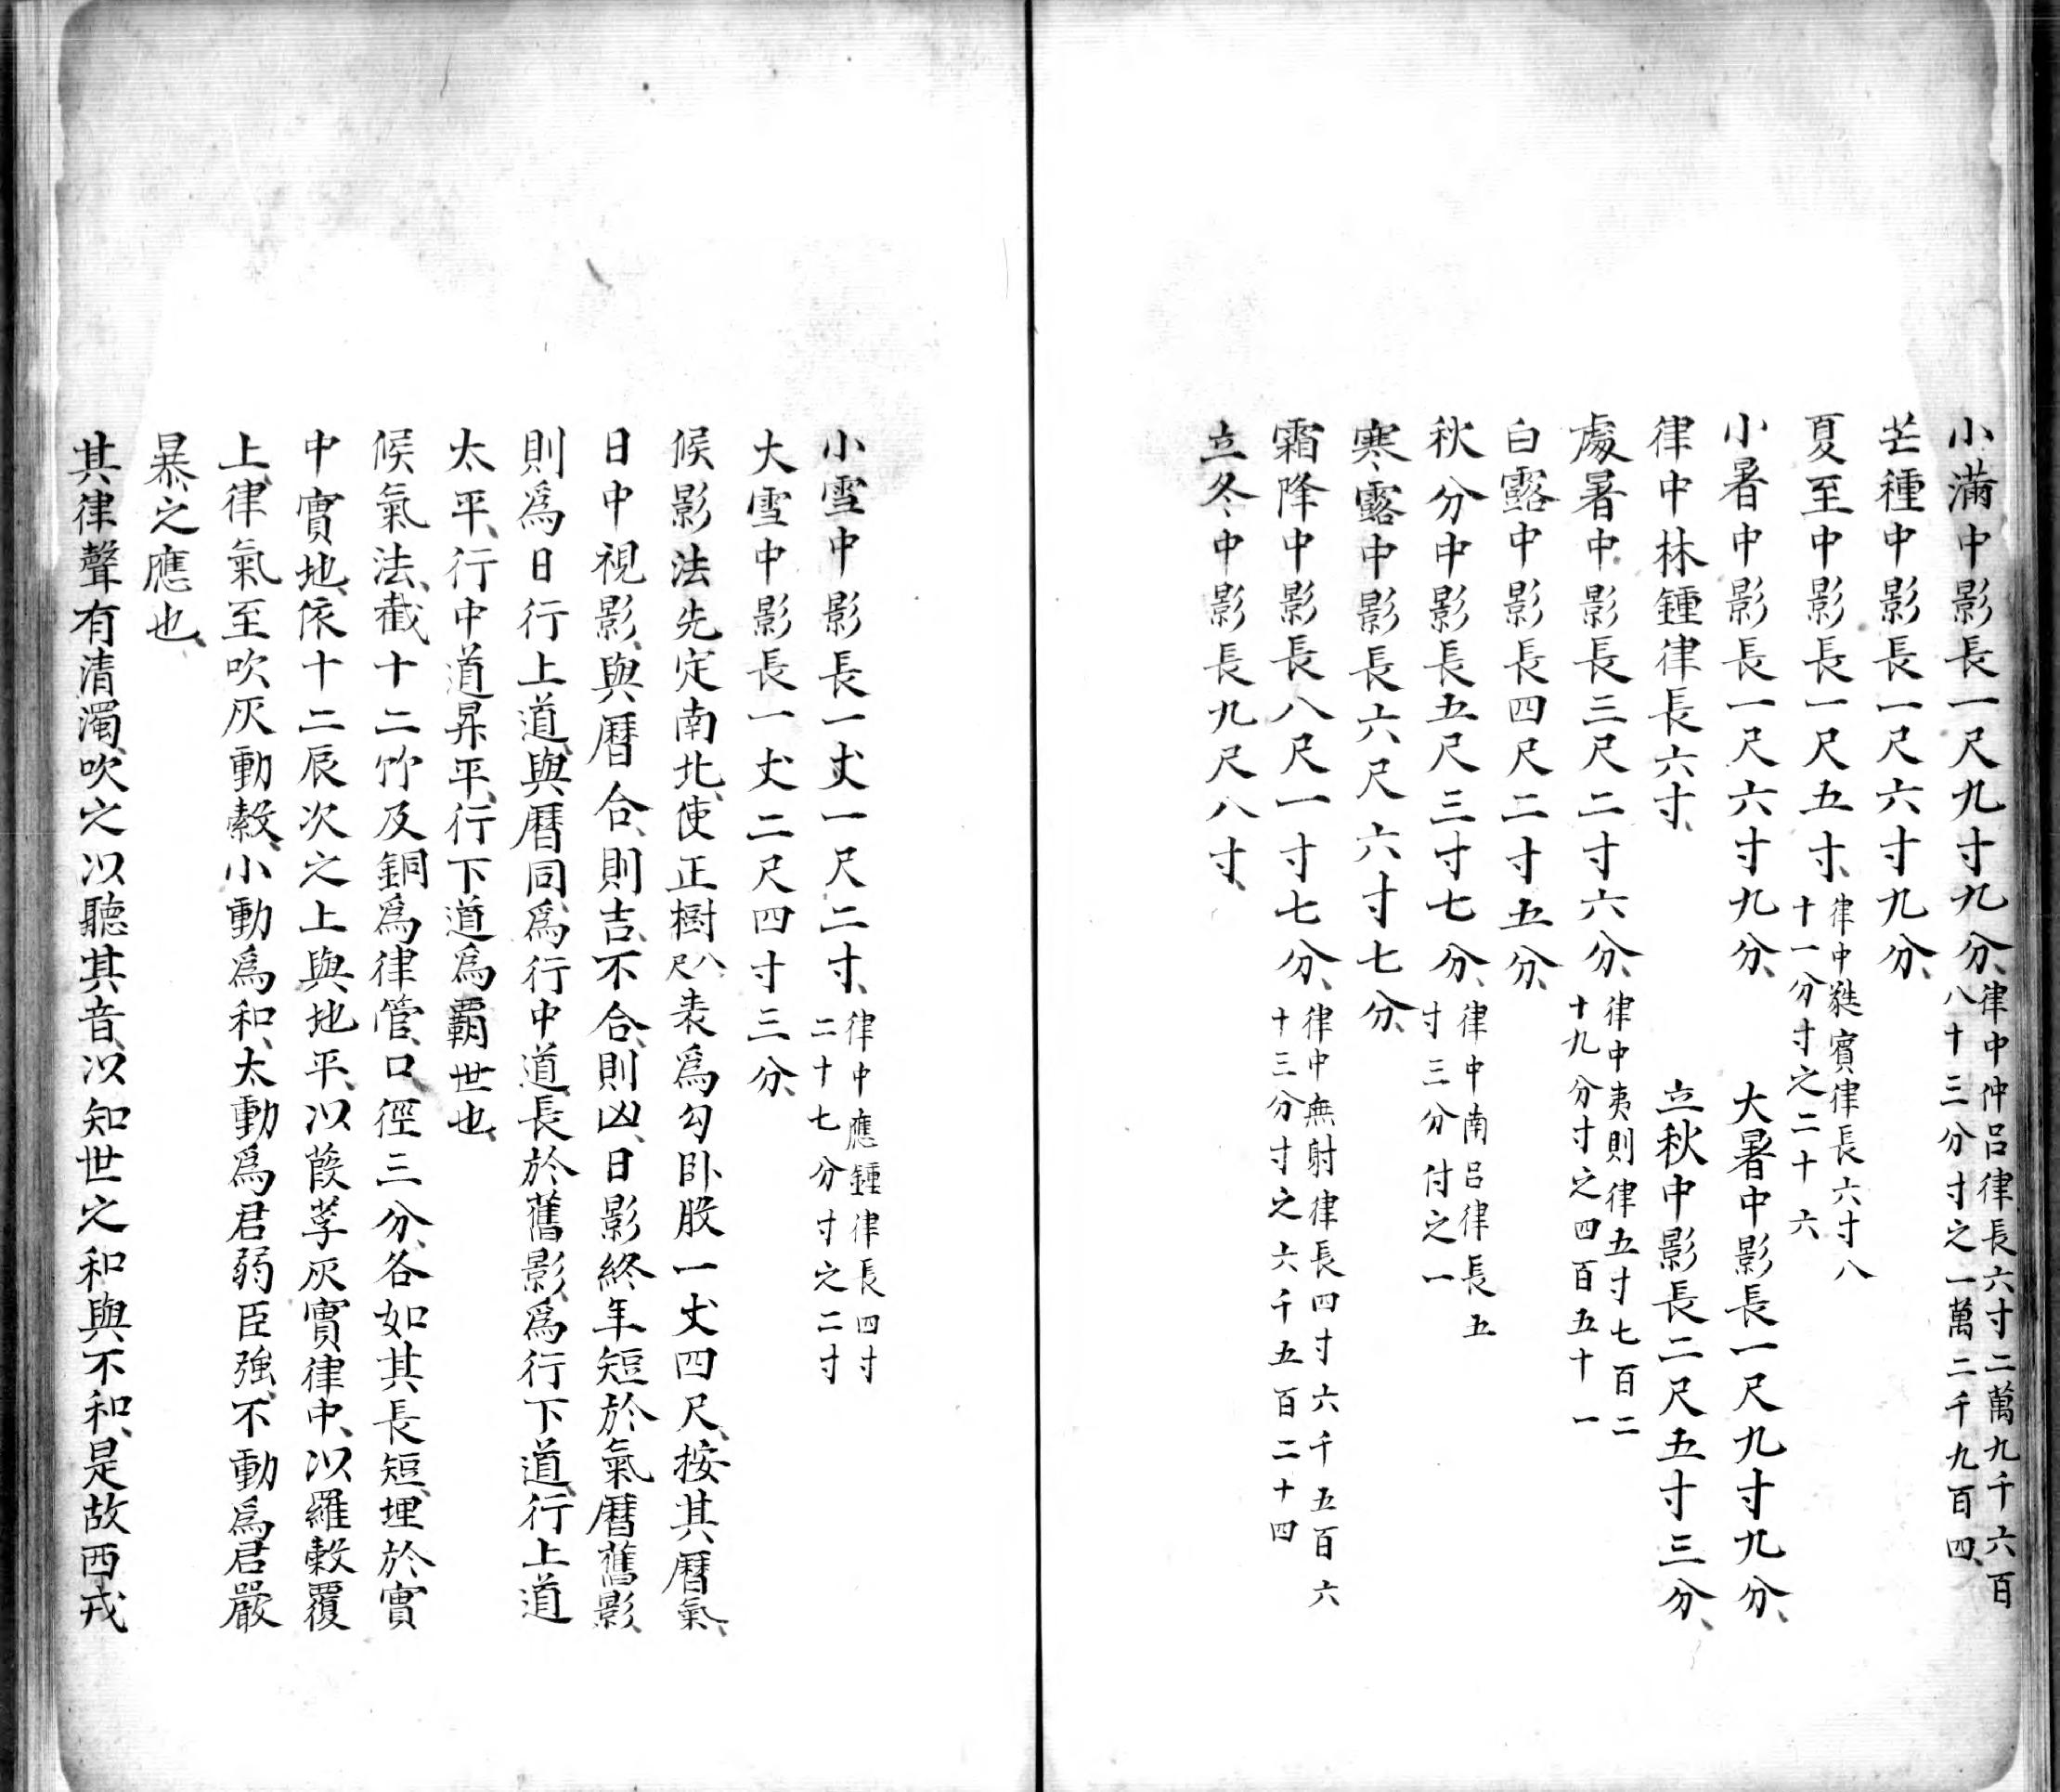 小滿中影長一尺九寸九分、律中仲呂律長六寸二萬九千六百八十三分寸之一萬二千九百四、
芒種中影長一尺六寸九分、
夏至中影長一尺五寸、律中蕤賓律長六寸八十一分寸之二十六
小暑中影長一尺六寸九分、 大暑中影長一尺九寸九分、
律中林鍾律長六寸、 立秋中影長二尺五寸三分、
處暑中影長三尺二寸六分、律中夷則律五寸七百二十九分寸之四百五十一
白露中影長四尺二寸五分、
秋分中影長五尺三寸七分、律中南呂律長五寸三分付之一
寒露中影長六尺六寸七分、
霜降中影長八尺一寸七分、律中無射律長四寸六千五百六十三分寸之六千五百二十四
立冬中影長九尺八寸、
小雪中影長一丈一尺二寸、律中應鍾律長四寸二十七分寸之二寸
大雪中影長一丈二尺四寸三分、
候影法先定南北、使正樹八尺表爲勾卧股一丈四尺、按其曆氣、
日中視影、與曆合、則吉、不合、則凶、日影終年短於氣曆舊影、
則爲日行上道、與曆同、爲行中道、長於舊影、爲行下道、行上道
太平、行中道昇平、行下道爲覇世也、
候氣法、截十二竹及銅爲律管、口徑三分、各如其長短、埋於實
中實地、依十二辰次之上與地平、以葭莩灰實律中、以羅縠覆
上、律氣至吹灰動縠、小動爲和、太動爲君弱臣強、不動爲君嚴
暴之應也、
其律聲有清濁、吹之以聽其音、以知世之和與不和、是故西戎